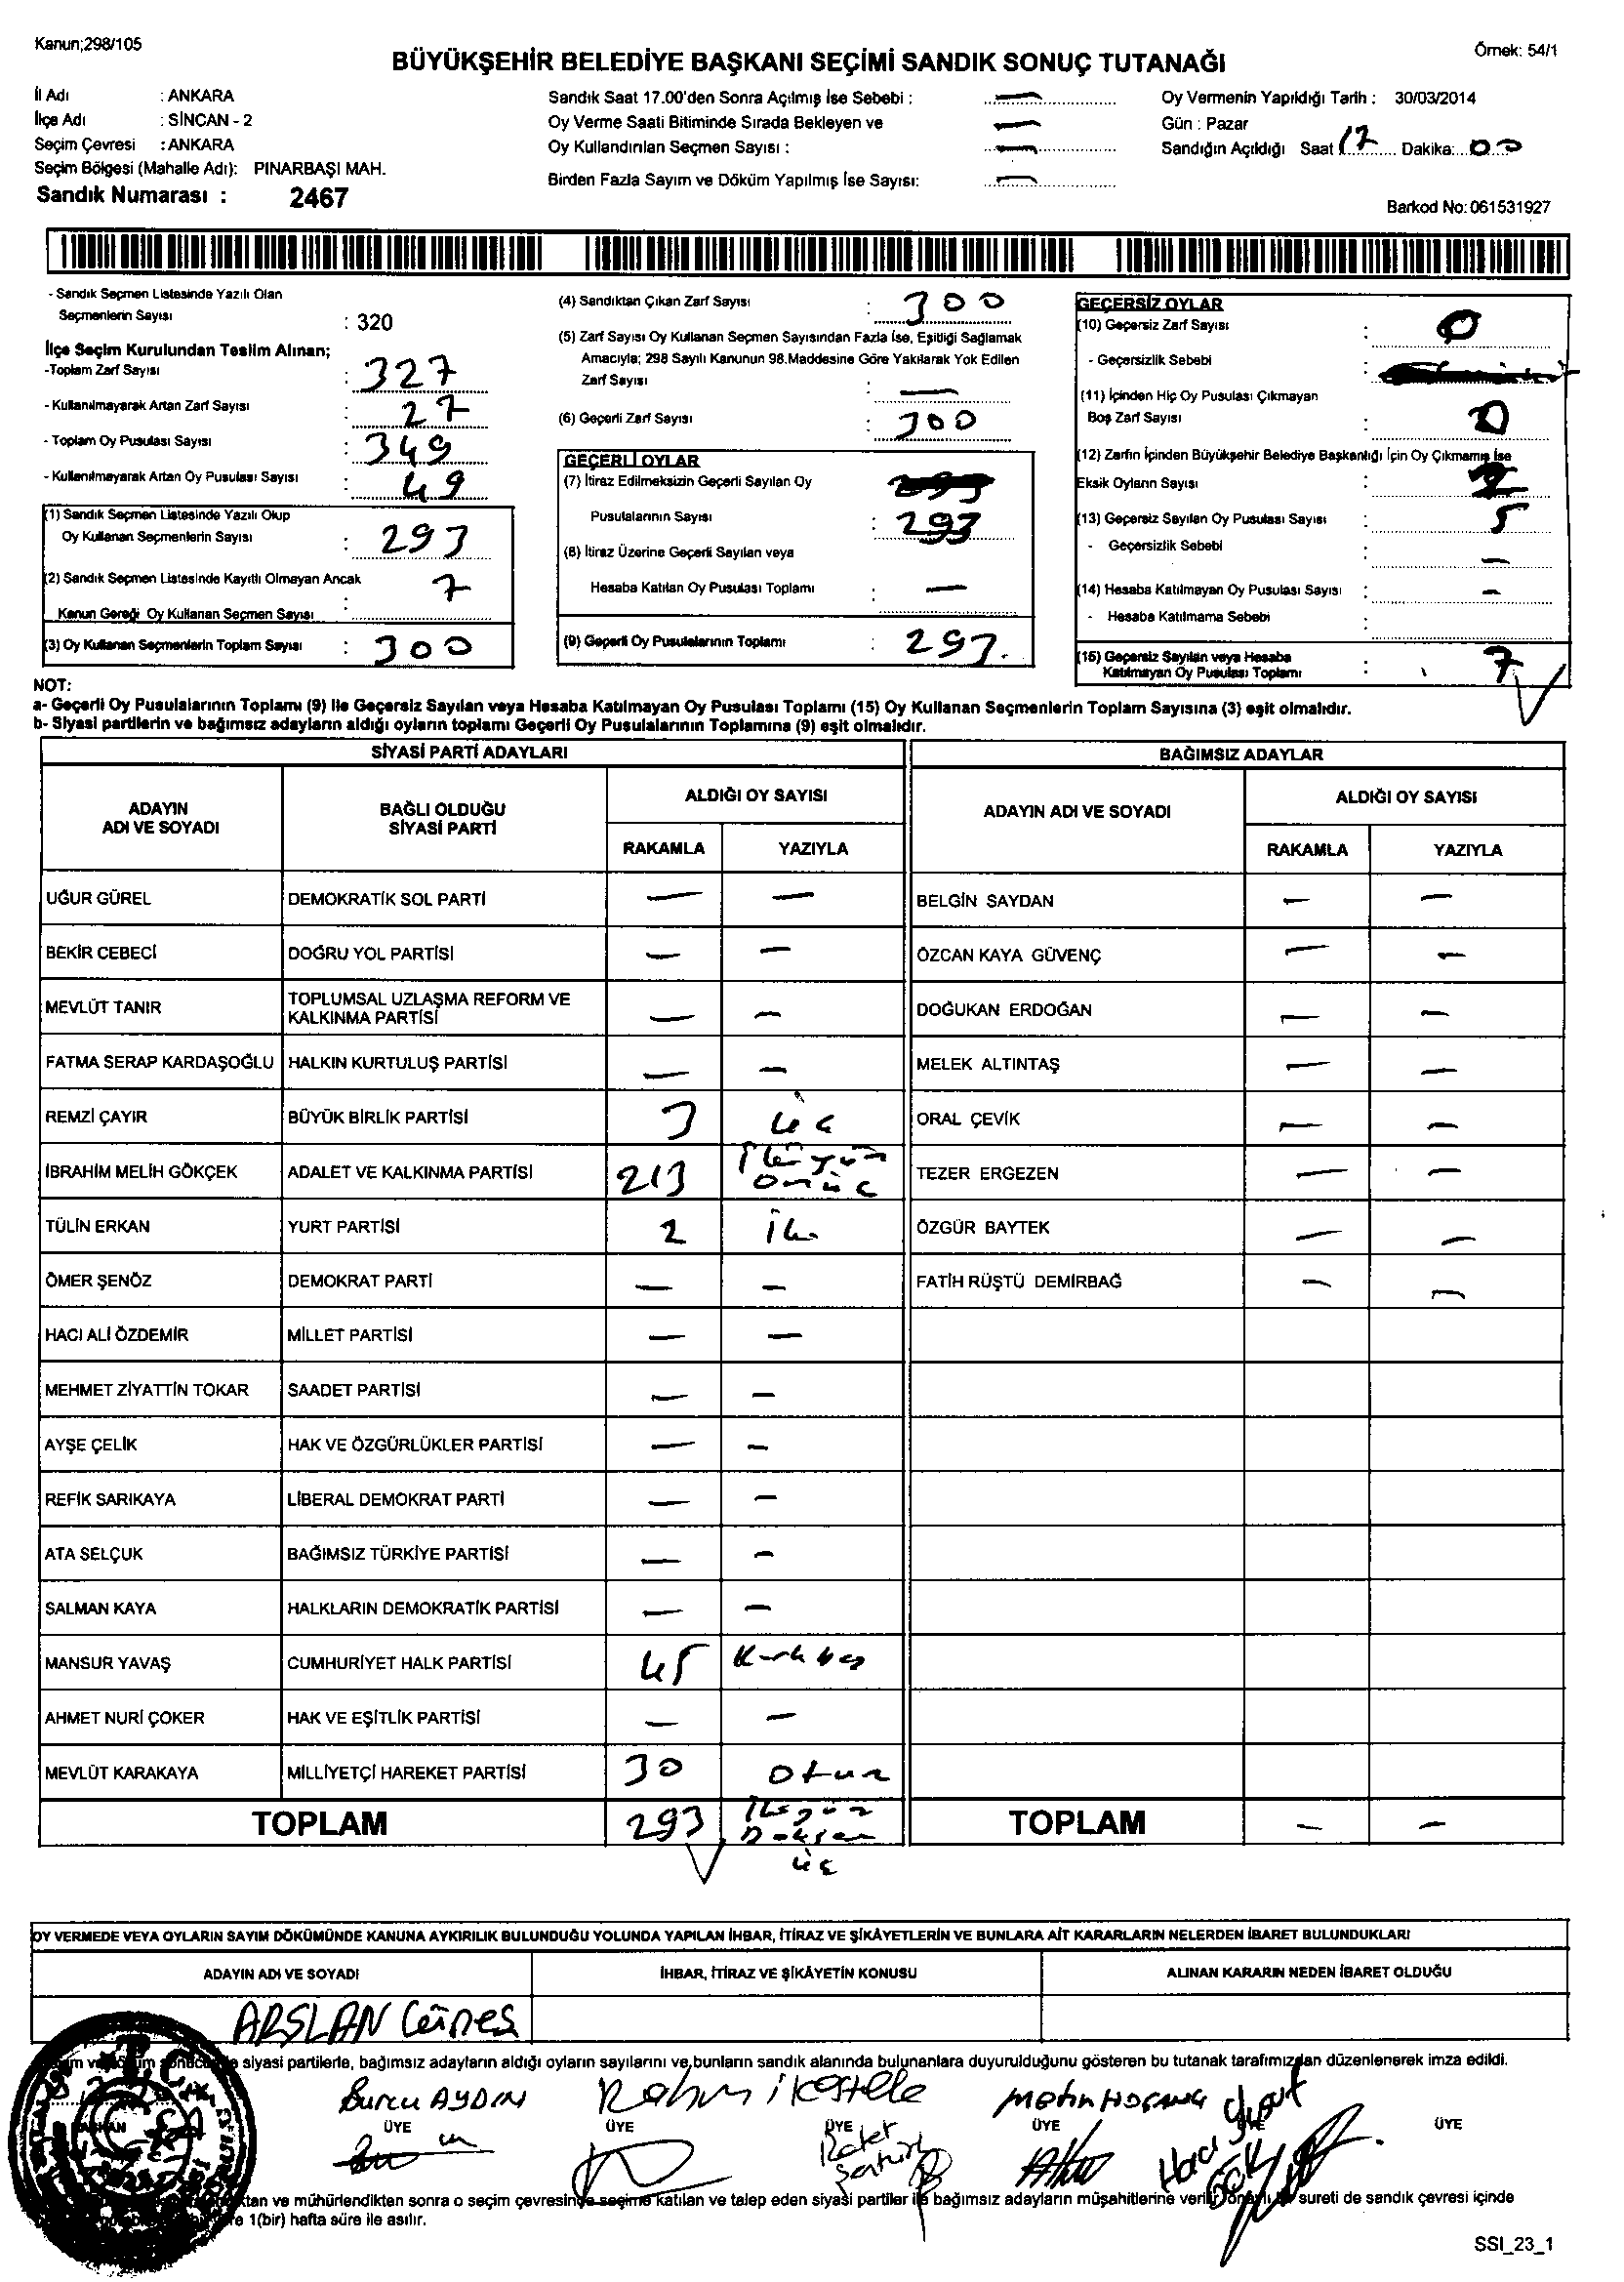 Kanun;298/105
Örnek: 54/1
BÜYÜKŞEHİR BELEDİYE BAŞKANI SEÇİMİ SANDIK SONUÇ TUTANAĞI
İl Adı : ANKARA
İlçe Adı : SİNCAN - 2
Seçim Çevresi : ANKARA
Seçim Bölgesi (Mahalle Adı): PINARBAŞI MAH.
Sandık Numarası : 2467
Sandık Saat 17.00'den Sonra Açılmış İse Sebebi : —
Oy Verme Saati Bitiminde Sırada Bekleyen ve —
Oy Kullandırılan Seçmen Sayısı : —
Birden Fazla Sayım ve Döküm Yapılmış İse Sayısı: —
Oy Vermenin Yapıldığı Tarih : 30/03/2014
Gün : Pazar
Sandığın Açıldığı Saat 17 Dakika: 00
Barkod No: 061531927
- Sandık Seçmen Listesinde Yazılı Olan
Seçmenlerin Sayısı : 320
İlçe Seçim Kurulundan Teslim Alınan;
-Toplam Zarf Sayısı : 327
- Kullanılmayarak Artan Zarf Sayısı : 27
- Toplam Oy Pusulası Sayısı : 349
- Kullanılmayarak Artan Oy Pusulası Sayısı : 49
(1) Sandık Seçmen Listesinde Yazılı Olup
Oy Kullanan Seçmenlerin Sayısı : 293
(2) Sandık Seçmen Listesinde Kayıtlı Olmayan Ancak
Kanun Gereği Oy Kullanan Seçmen Sayısı : 7
(3) Oy Kullanan Seçmenlerin Toplam Sayısı : 300
(4) Sandıktan Çıkan Zarf Sayısı : 300
(5) Zarf Sayısı Oy Kullanan Seçmen Sayısından Fazla İse, Eşitliği Sağlamak
Amacıyla; 298 Sayılı Kanunun 98.Maddesine Göre Yakılarak Yok Edilen
Zarf Sayısı : —
(6) Geçerli Zarf Sayısı : 300
GEÇERLİ OYLAR
(7) İtiraz Edilmeksizin Geçerli Sayılan Oy
Pusulalarının Sayısı : 293
(8) İtiraz Üzerine Geçerli Sayılan veya
Hesaba Katılan Oy Pusulası Toplamı : —
(9) Geçerli Oy Pusulalarının Toplamı : 293.
GEÇERSİZ OYLAR
(10) Geçersiz Zarf Sayısı : 0
- Geçersizlik Sebebi :
(11) İçinden Hiç Oy Pusulası Çıkmayan
Boş Zarf Sayısı : 0
(12) Zarfın İçinden Büyükşehir Belediye Başkanlığı İçin Oy Çıkmamış İse
Eksik Oyların Sayısı : 2
(13) Geçersiz Sayılan Oy Pusulası Sayısı : 5
- Geçersizlik Sebebi : —
(14) Hesaba Katılmayan Oy Pusulası Sayısı : -
- Hesaba Katılmama Sebebi :
(15) Geçersiz Sayılan veya Hesaba
Katılmayan Oy Pusulası Toplamı : 7
NOT:
a- Geçerli Oy Pusulalarının Toplamı (9) ile Geçersiz Sayılan veya Hesaba Katılmayan Oy Pusulası Toplamı (15) Oy Kullanan Seçmenlerin Toplam Sayısına (3) eşit olmalıdır.
b- Siyasi partilerin ve bağımsız adayların aldığı oyların toplamı Geçerli Oy Pusulalarının Toplamına (9) eşit olmalıdır.
SİYASİ PARTİ ADAYLARI
ADAYIN ADI VE SOYADI
BAĞLI OLDUĞU SİYASİ PARTİ
ALDIĞI OY SAYISI
RAKAMLA YAZIYLA
UĞUR GÜREL DEMOKRATİK SOL PARTİ — —
BEKİR CEBECİ DOĞRU YOL PARTİSİ — —
MEVLÜT TANIR TOPLUMSAL UZLAŞMA REFORM VE KALKINMA PARTİSİ — —
FATMA SERAP KARDAŞOĞLU HALKIN KURTULUŞ PARTİSİ — —
REMZİ ÇAYIR BÜYÜK BİRLİK PARTİSİ 3 üç
İBRAHİM MELİH GÖKÇEK ADALET VE KALKINMA PARTİSİ 213 İkiyüz onüç
TÜLİN ERKAN YURT PARTİSİ 2 iki
ÖMER ŞENÖZ DEMOKRAT PARTİ — —
HACI ALİ ÖZDEMİR MİLLET PARTİSİ — —
MEHMET ZİYATTİN TOKAR SAADET PARTİSİ — —
AYŞE ÇELİK HAK VE ÖZGÜRLÜKLER PARTİSİ — —
REFİK SARIKAYA LİBERAL DEMOKRAT PARTİ — —
ATA SELÇUK BAĞIMSIZ TÜRKİYE PARTİSİ — —
SALMAN KAYA HALKLARIN DEMOKRATİK PARTİSİ — —
MANSUR YAVAŞ CUMHURİYET HALK PARTİSİ 45 Kırkbeş
AHMET NURİ ÇOKER HAK VE EŞİTLİK PARTİSİ — —
MEVLÜT KARAKAYA MİLLİYETÇİ HAREKET PARTİSİ 30 Otuz
TOPLAM 293 İkiyüz Doksan üç
BAĞIMSIZ ADAYLAR
ADAYIN ADI VE SOYADI
ALDIĞI OY SAYISI
RAKAMLA YAZIYLA
BELGİN SAYDAN — —
ÖZCAN KAYA GÜVENÇ — —
DOĞUKAN ERDOĞAN — —
MELEK ALTINTAŞ — —
ORAL ÇEVİK — —
TEZER ERGEZEN — —
ÖZGÜR BAYTEK — —
FATİH RÜŞTÜ DEMİRBAĞ — —
TOPLAM — —
OY VERMEDE VEYA OYLARIN SAYIM DÖKÜMÜNDE KANUNA AYKIRILIK BULUNDUĞU YOLUNDA YAPILAN İHBAR, İTİRAZ VE ŞİKÂYETLERİN VE BUNLARA AİT KARARLARIN NELERDEN İBARET BULUNDUKLARI
ADAYIN ADI VE SOYADI
İHBAR, İTİRAZ VE ŞİKÂYETİN KONUSU
ALINAN KARARIN NEDEN İBARET OLDUĞU
ARSLAN Güneş
siyasi partilerle, bağımsız adayların aldığı oyların sayılarını ve bunların sandık alanında bulunanlara duyurulduğunu gösteren bu tutanak tarafımızdan düzenlenerek imza edildi.
Burcu AYDIN
ÜYE ÜYE ÜYE ÜYE ÜYE
ve mühürlendikten sonra o seçim çevresinde seçime katılan ve talep eden siyasi partiler ile bağımsız adayların müşahitlerine verilir. sureti de sandık çevresi içinde
1(bir) hafta süre ile asılır.
SSI_23_1